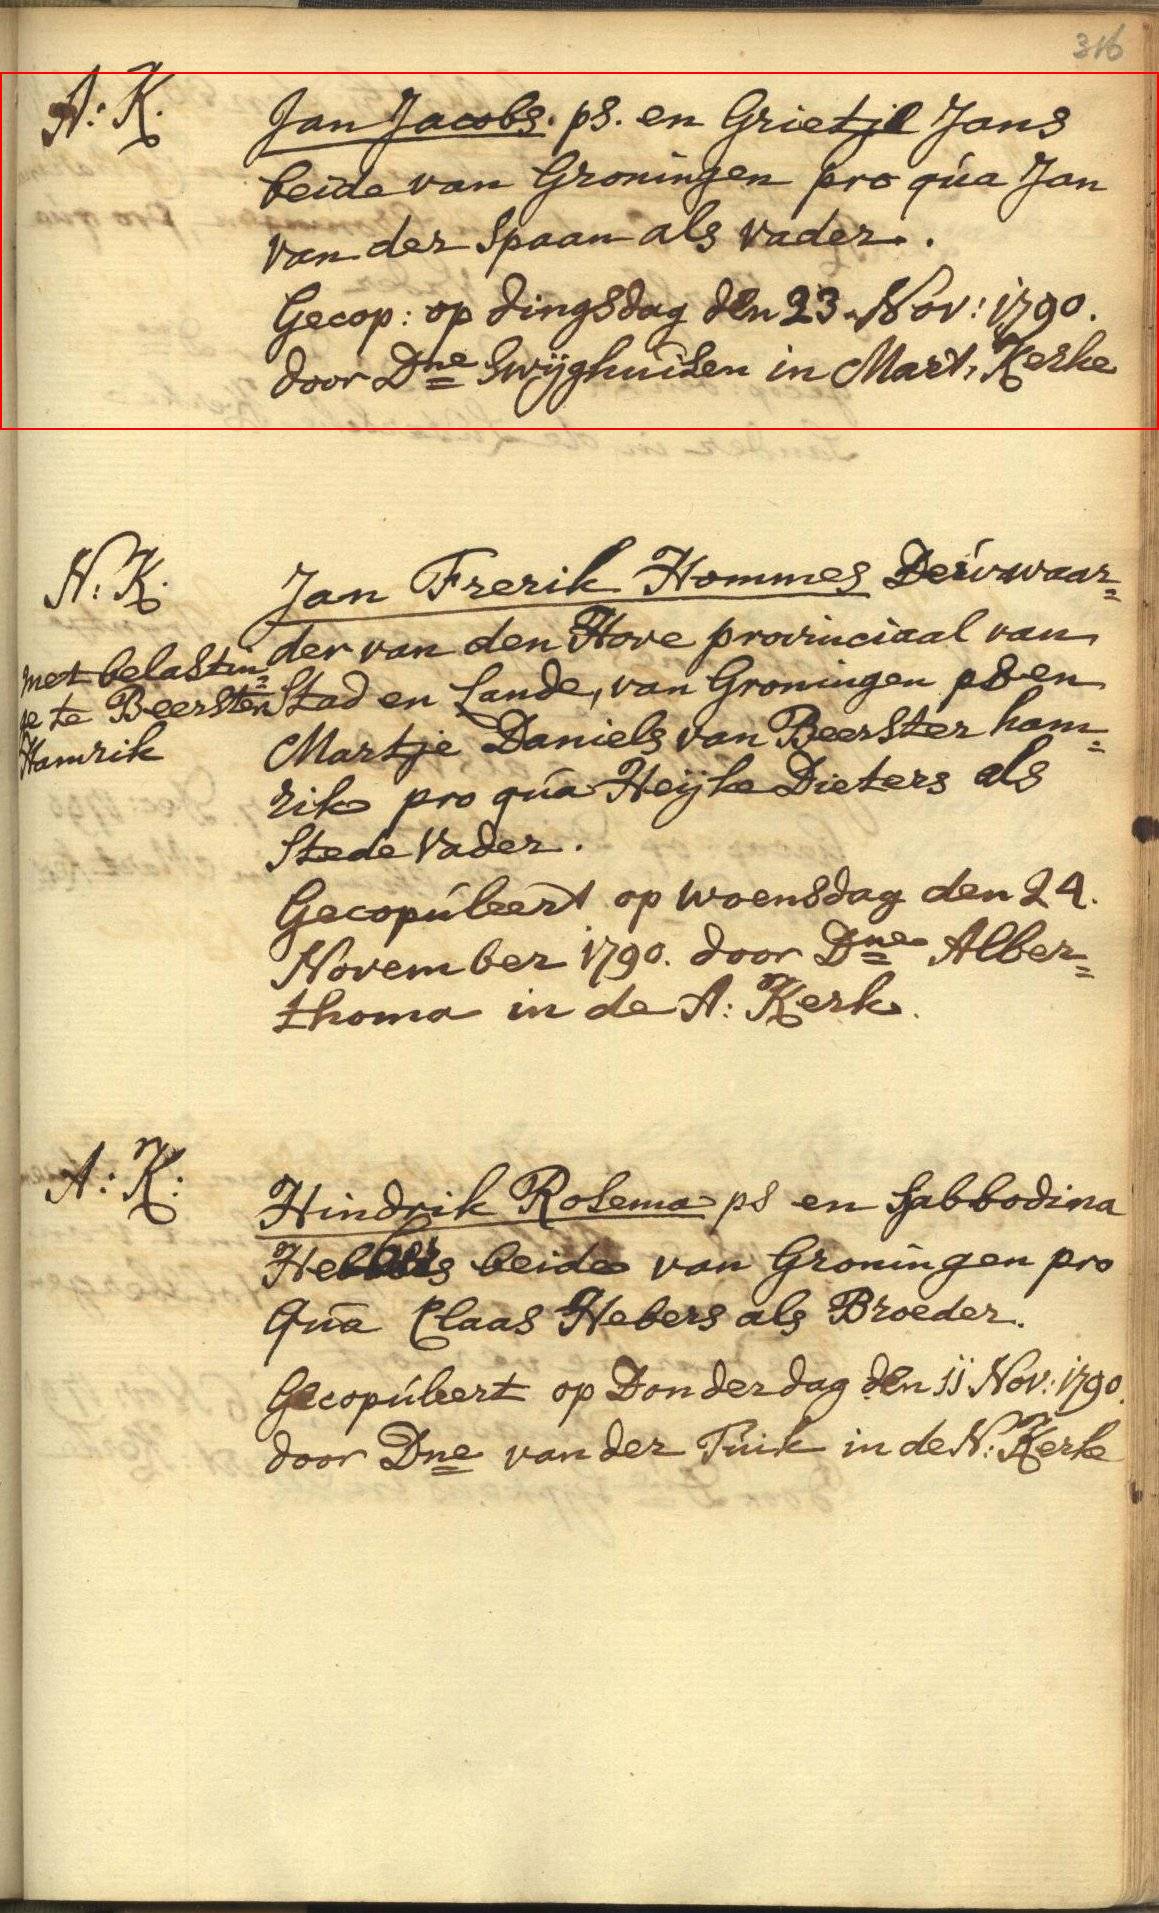 316
A: K.
Jan Jacobs. ps. en Grietje Jans
beide van Groningen pro qúa Jan
van der Spaan als vader.
Gecop: op dingsdag den 23 Nov: 1790.
door Dne Swijghuisen in Mart: Kerke
N: K.
met belastin=
ge te Beerster
Hamrik
Jan Frerik Hommes Deúrwaar=
der van den Hove provinciaal van
Stad en Lande, van Groningen ps en
Martje Daniels van Beerster ham=
rik pro qúa Heijke Dieters als
Stede Vader.
Gecopúleert op woensdag den 24.
November 1790. door Dne Alber=
thoma in de A: Kerk.
A: K:
Hindrik Rosema ps en Sabbodina
Hebers beide van Groningen pro
Qúa Claas Hebers als Broeder.
Gecopúleert op Donderdag den 11 Nov: 1790.
door Dne van der Túúk in de N: Kerke